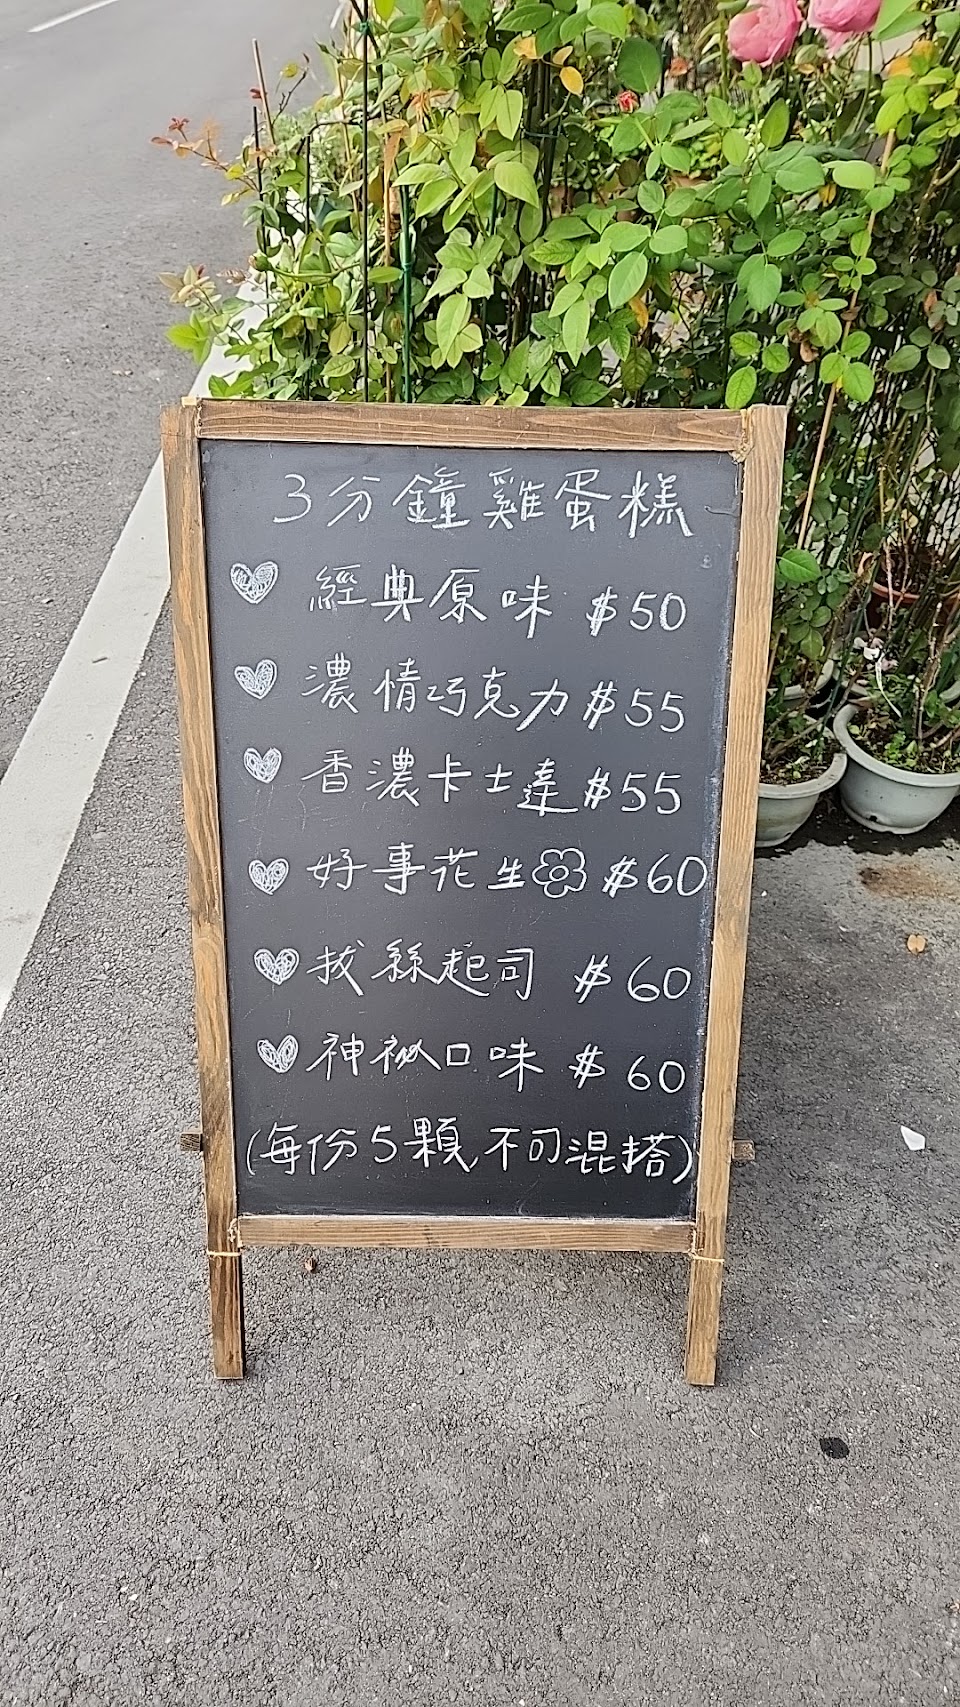 3分鐘雞蛋糕
經典原味 $50
濃情巧克力 $55
香濃卡士達 $55
好事花生 $60
拔絲起司 $60
神祕口味 $60
(每份5顆,不可混搭)